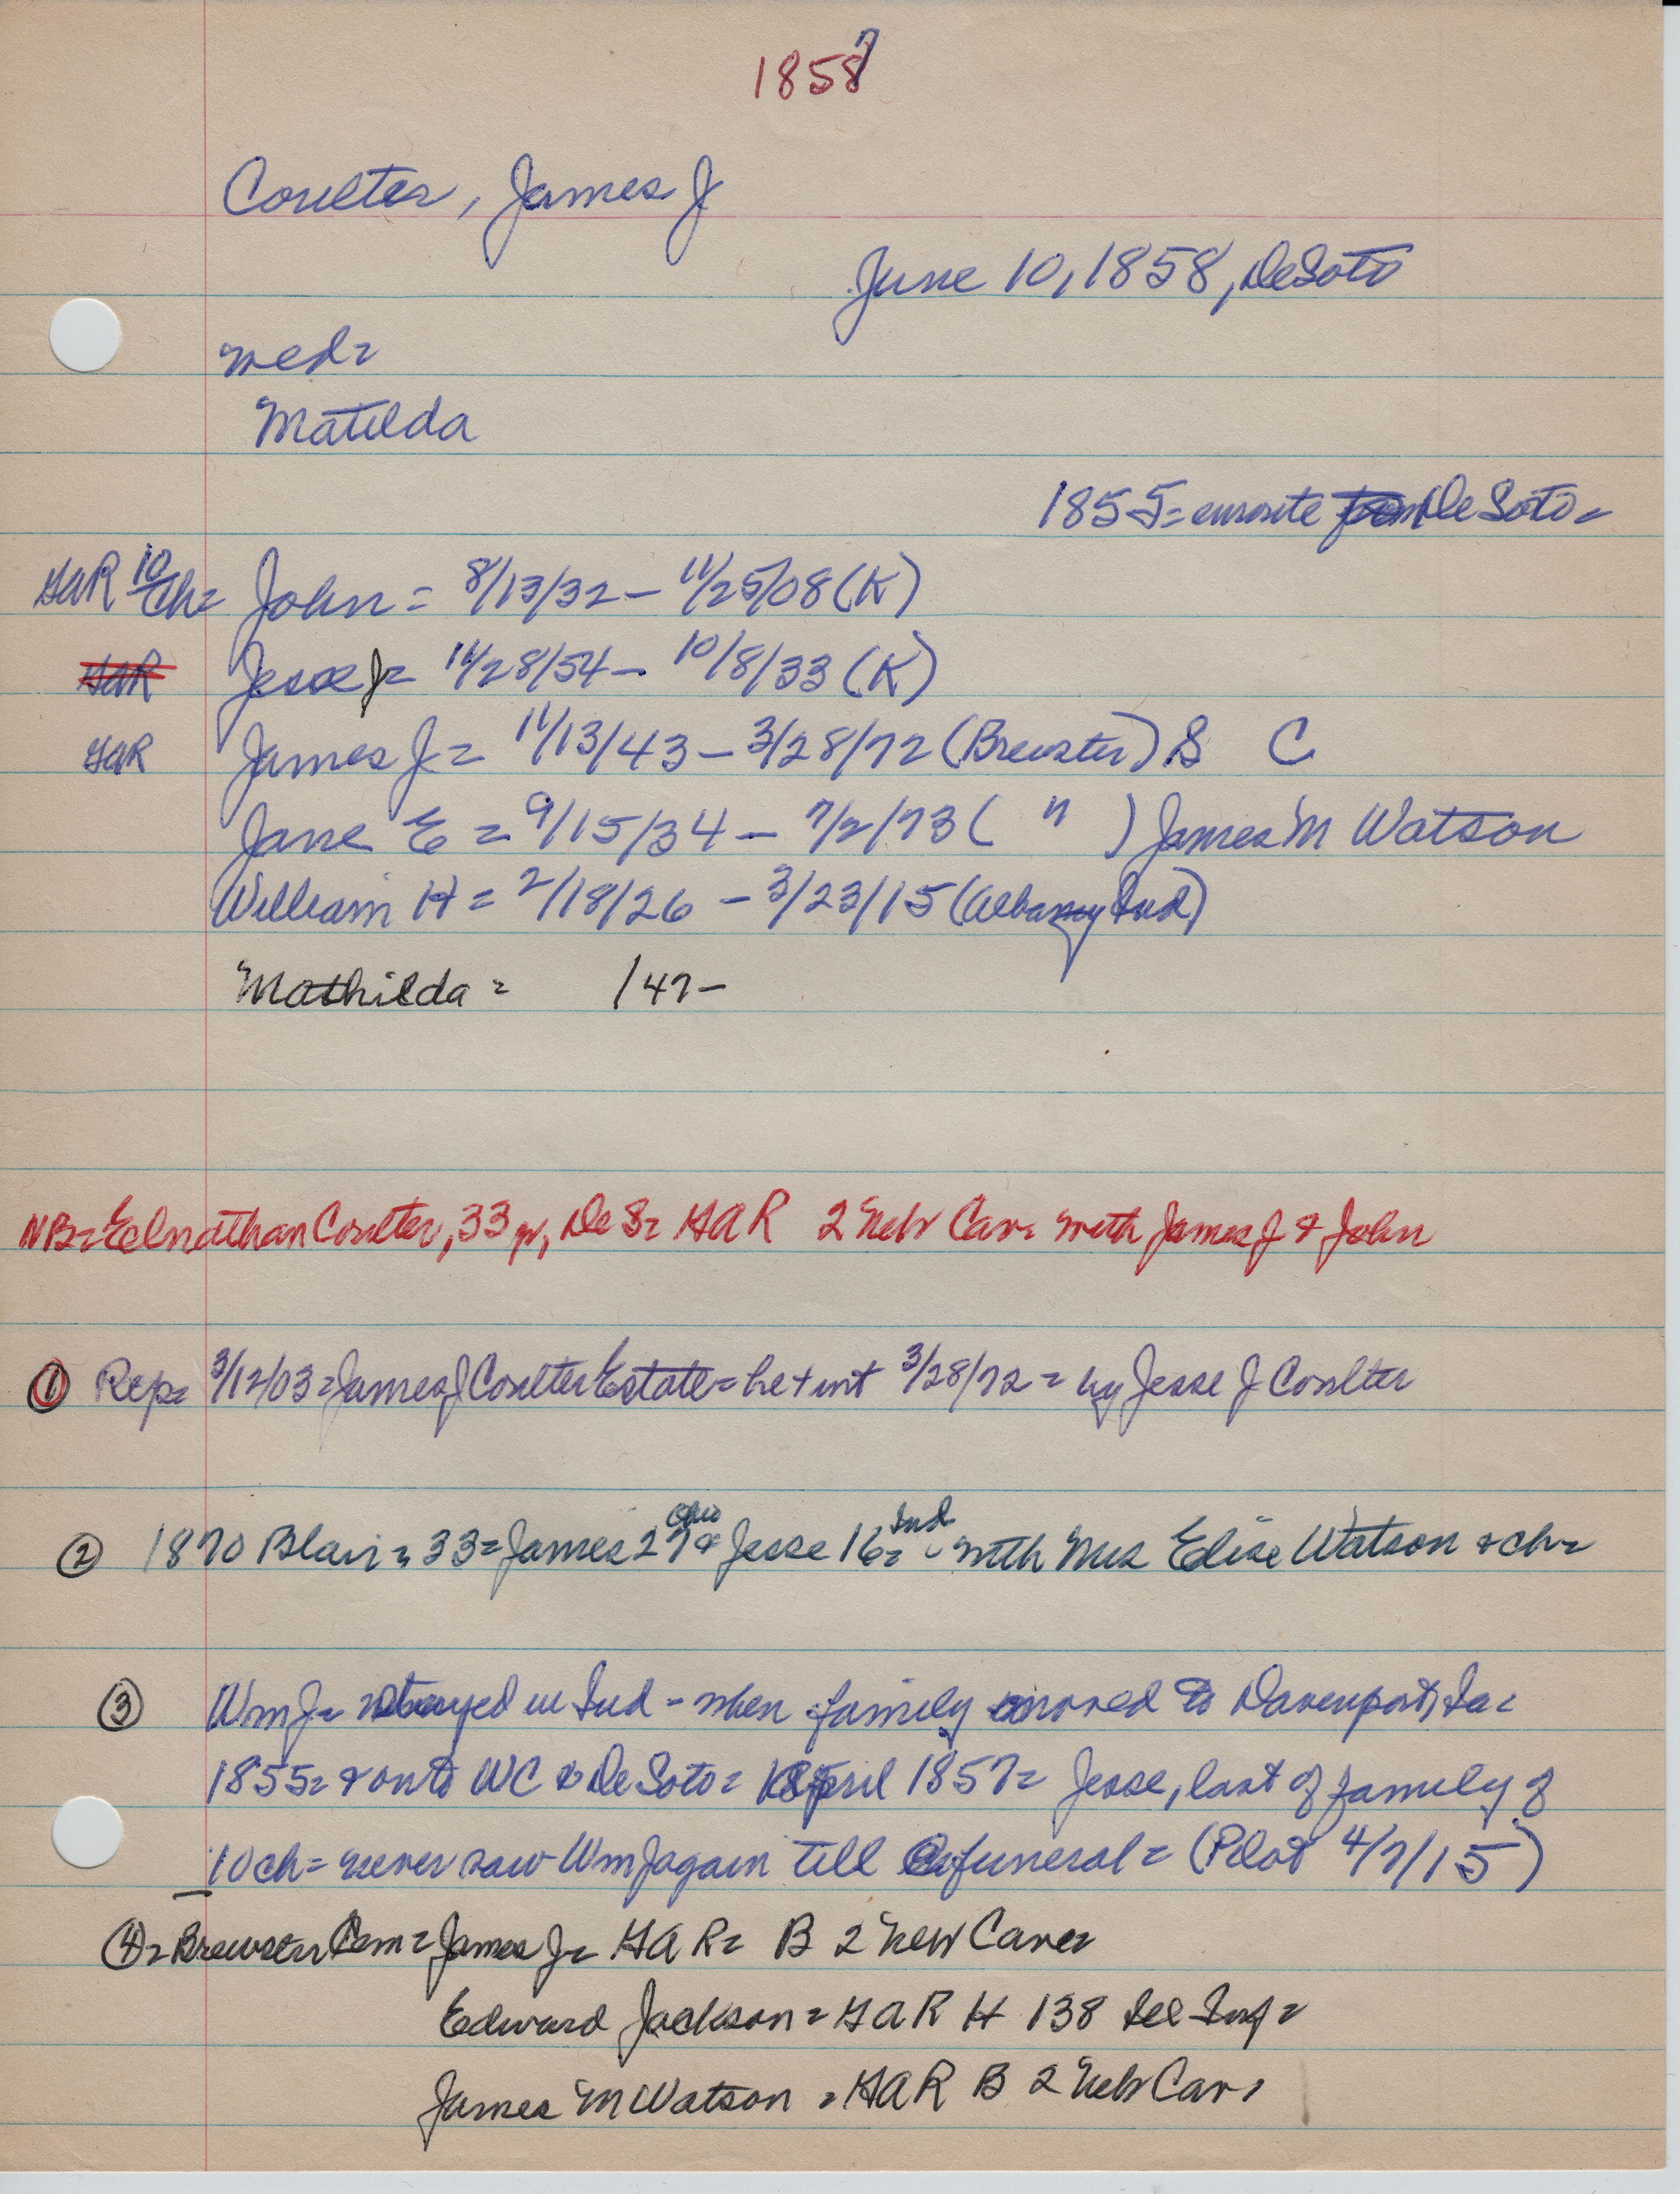 1857
Coulter, James J
June 10, 1858, DeSoto
med=
Matilda
1855= enroute from DeSoto=
GAR 10 Ch= John = 8/13/32 – 11/25/08 (K)
GAR Jesse J= 11/28/54 – 10/8/33 (K)
GAR James J = 11/13/43 – 3/28/72 (Brewster) S C
Jane E = 9/15/34 – 7/2/73 ( " ) James M Watson
William H = 2/18/26 – 3/23/15 (Albany Ind)
Mathilda = /47–
NB= Elnathan Coulter, 33 yr, De S= GAR 2 Neb Cav= with James J & John
① Rep= 3/12/03= James J Coulter Estate= he + int 3/28/72 = by Jesse J Coulter
② 1870 Blair= 33= James 27 Ohio & Jesse 16= Ind with Mrs Elise Watson & ch=
③ Wm J= stayed in Ind - when family moved to Davenport, Ia=
1855= & onto WC & DeSoto= April 1857= Jesse, last of family of
10 ch= never saw Wm J again till funeral= (Pilot 4/7/15)
④= Brewster Cem= James J= GAR= B 2 Neb Cav=
Edward Jackson= GAR H 138 Ill Inf=
James M Watson = GAR B 2 Neb Cav=